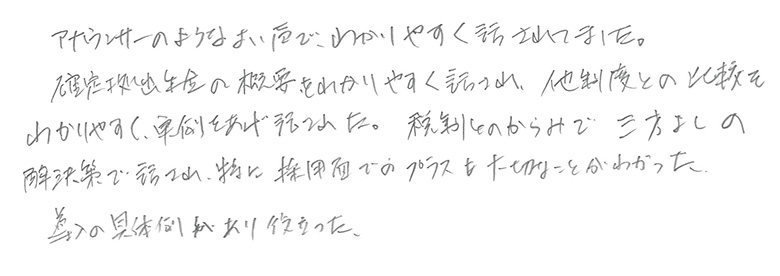 アナウンサーのようなよい声で、わかりやすく話されてました。
確定拠出年金の概要をわかりやすく話され、他制度との比較を
わかりやすく、事例をあげ話された。税制とのからみで三方よしの
解決策で話され、特に採用面でのプラスも大切なことがわかった。
導入の具体例もあり役立った。